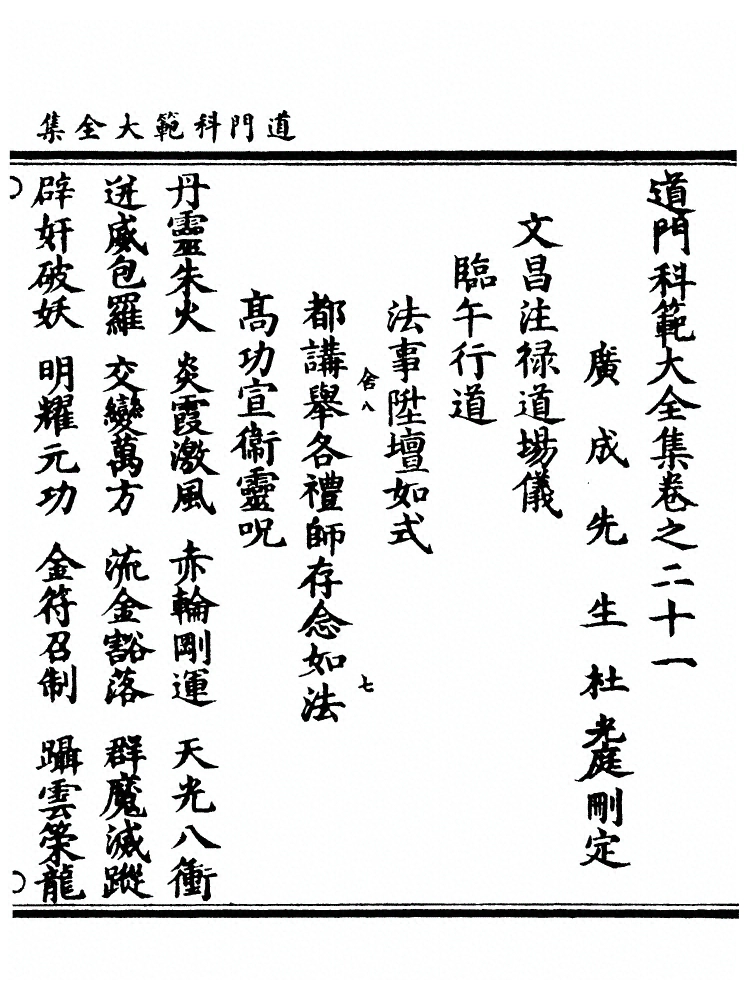 道門科範大全集
道門科範大全集卷之二十一
廣成先生杜光庭刪定
文昌注祿道場儀
臨午行道
法事陞壇如式
舍八
七
都講舉各禮師存念如法
高功宣衞靈呪
丹靈朱火 炎霞激風 赤輪剛運 天光八衝
迸威包羅 交變萬方 流金豁落 群魔滅蹤
辟奸破妖 明耀元功 金符召制 躡雲策龍